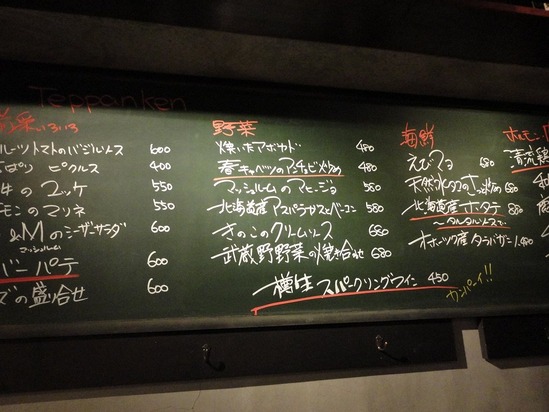 Teppanken
前菜いろいろ
ルーツトマトのバジルソース 600
ぱり ピクルス 400
牛のユッケ 550
モンのマリネ 550
&Mのシーザーサラダ 600
マッシュルーム
バーパテ 600
ズの盛り合せ 600
野菜
焼いたアボカド 480
春キャベツのアンチョビ炒め 480
マッシュルームのアヒージョ 580
北海道産アスパラガスとベーコン 580
きのこのクリームソース 680
武蔵野野菜の焼き合せ 680
樽生スパークリングワイン 450
カンパーイ!!
海鮮
えびマヨ 680
天然水タコの 炒め 680
北海道産ホタテ 680
〜タルタルソースで〜
オホーツク産タラバガニ 1,480
ホルモン
清流鶏